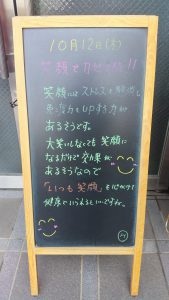 10月12日(木)
笑顔で力UP!!
笑顔にはストレスを解消し
免疫力をUPする力が
あるそうです。
大笑いしなくても笑顔に
なるだけで効果が
あるそうなので
「いつも笑顔」を心がけて
健康でいられるといいですね。